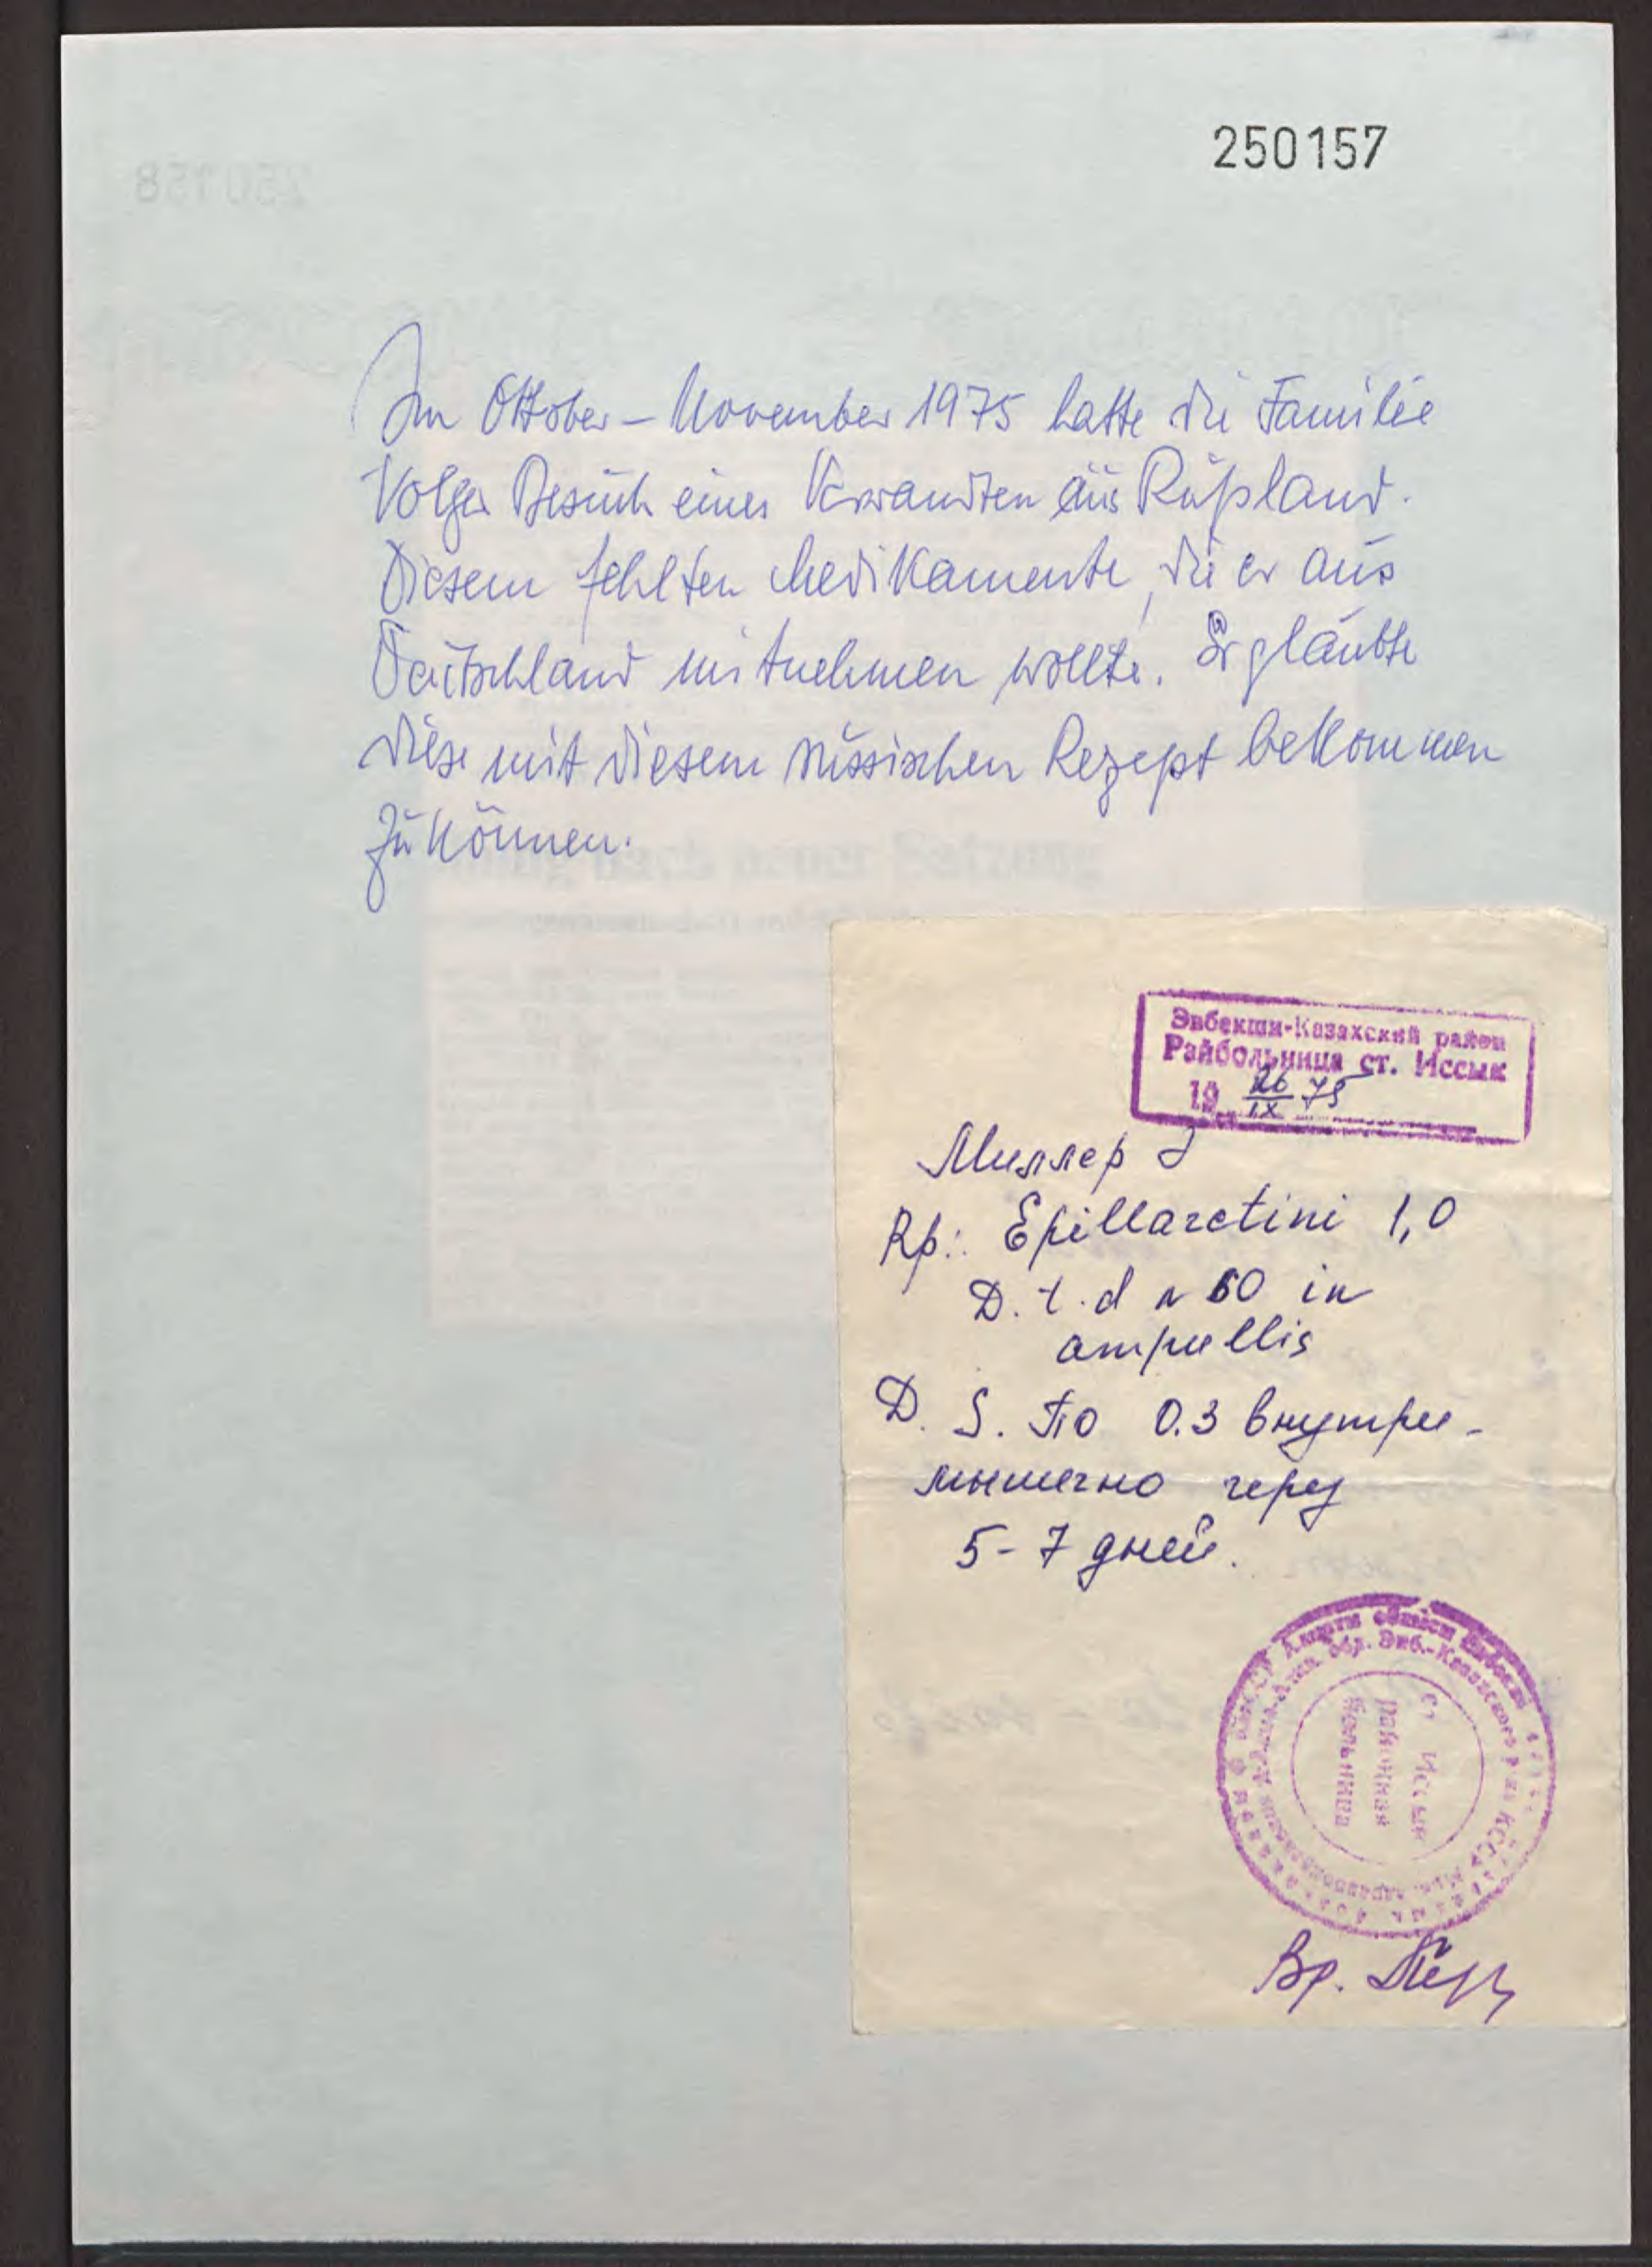 250157
Im Oktober – November 1975 hatte die Familie
Volger Besuch eines Verwandten aus Rußland.
Diesem fehlten Medikamente, die er aus
Deutschland mitnehmen wollte. Er glaubte
diese mit diesem russischen Rezept bekommen
zu können.
Энбекши-Казахский район
Райбольница ст. Иссык
19 26/IX 75
Миллер
Rp: Epillarctini 1,0
D. t. d N 60 in
ampullis
D. S. По 0.3 внутри-
мышечно через
5-7 дней.
районная
больница
Вр.